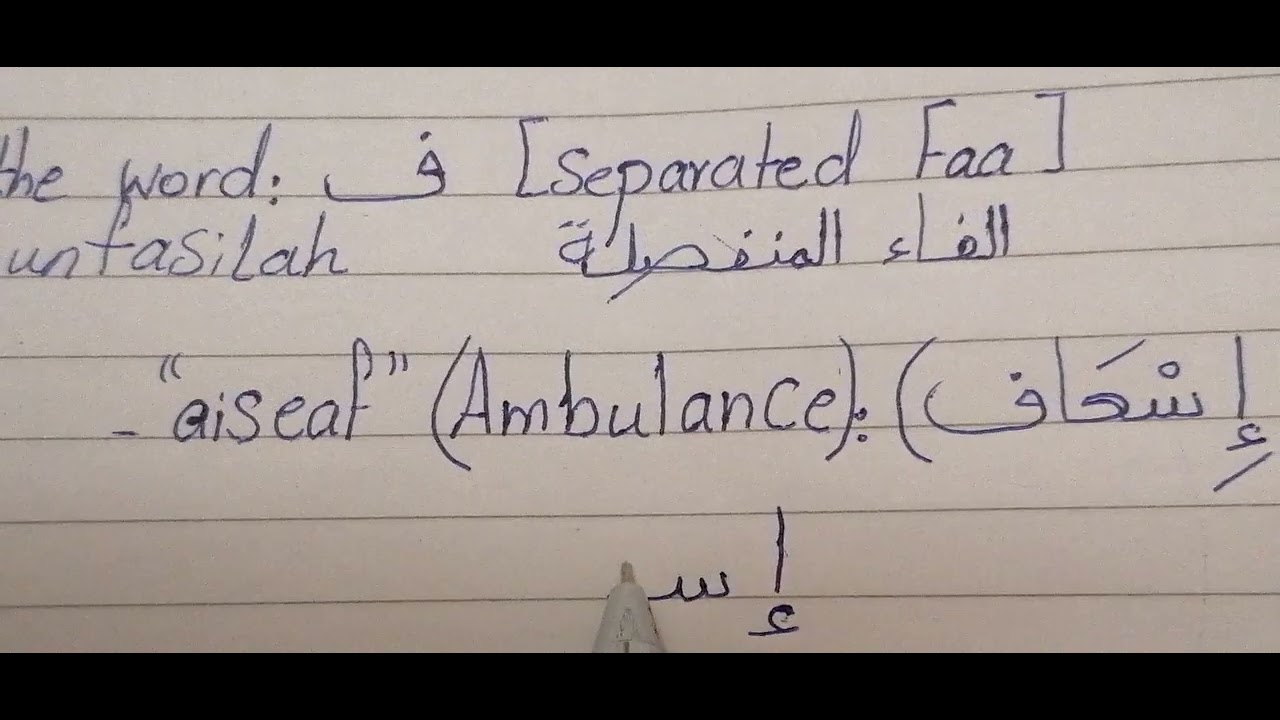 the word: ف [Separated Faa]
unfasilah الفاء المنفصلة
- "aiseaf" (Ambulance): (إِسْعَاف
إ سـ